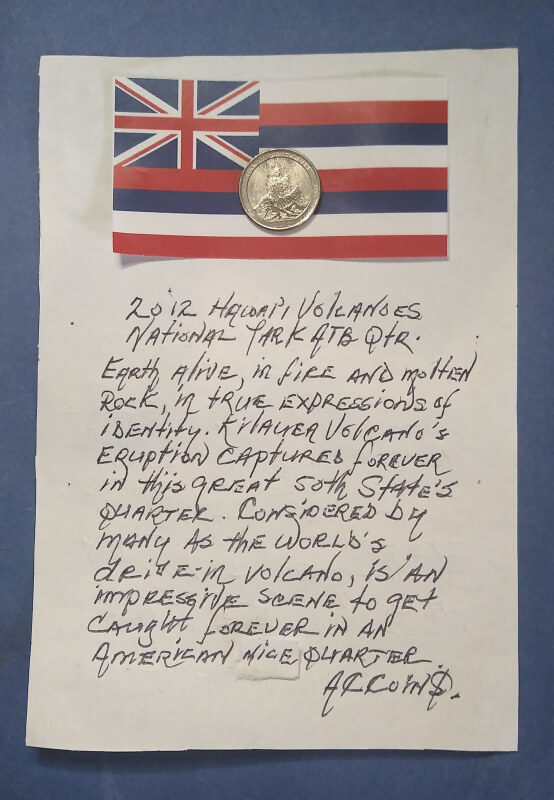 2012 HAWAI'I VOLCANOES
NATIONAL PARK ATB Qtr.
EARTH ALIVE, in fiRE AND molTEN
ROCK, in TRUE EXPRESSIONS of
IDENTITY. KILAUEA VOLCANO's
ERUPTION CAPTURED foREVER
in this GREAT 50th STATE'S
QUARTER. CONSIDERED by
MANY AS the WORLD'S
DRIVE-IN VOLCANO, IS AN
IMPRESSIVE SCENE to GET
CAUGHT foREVER in AN
AMERICAN NICE QUARTER.